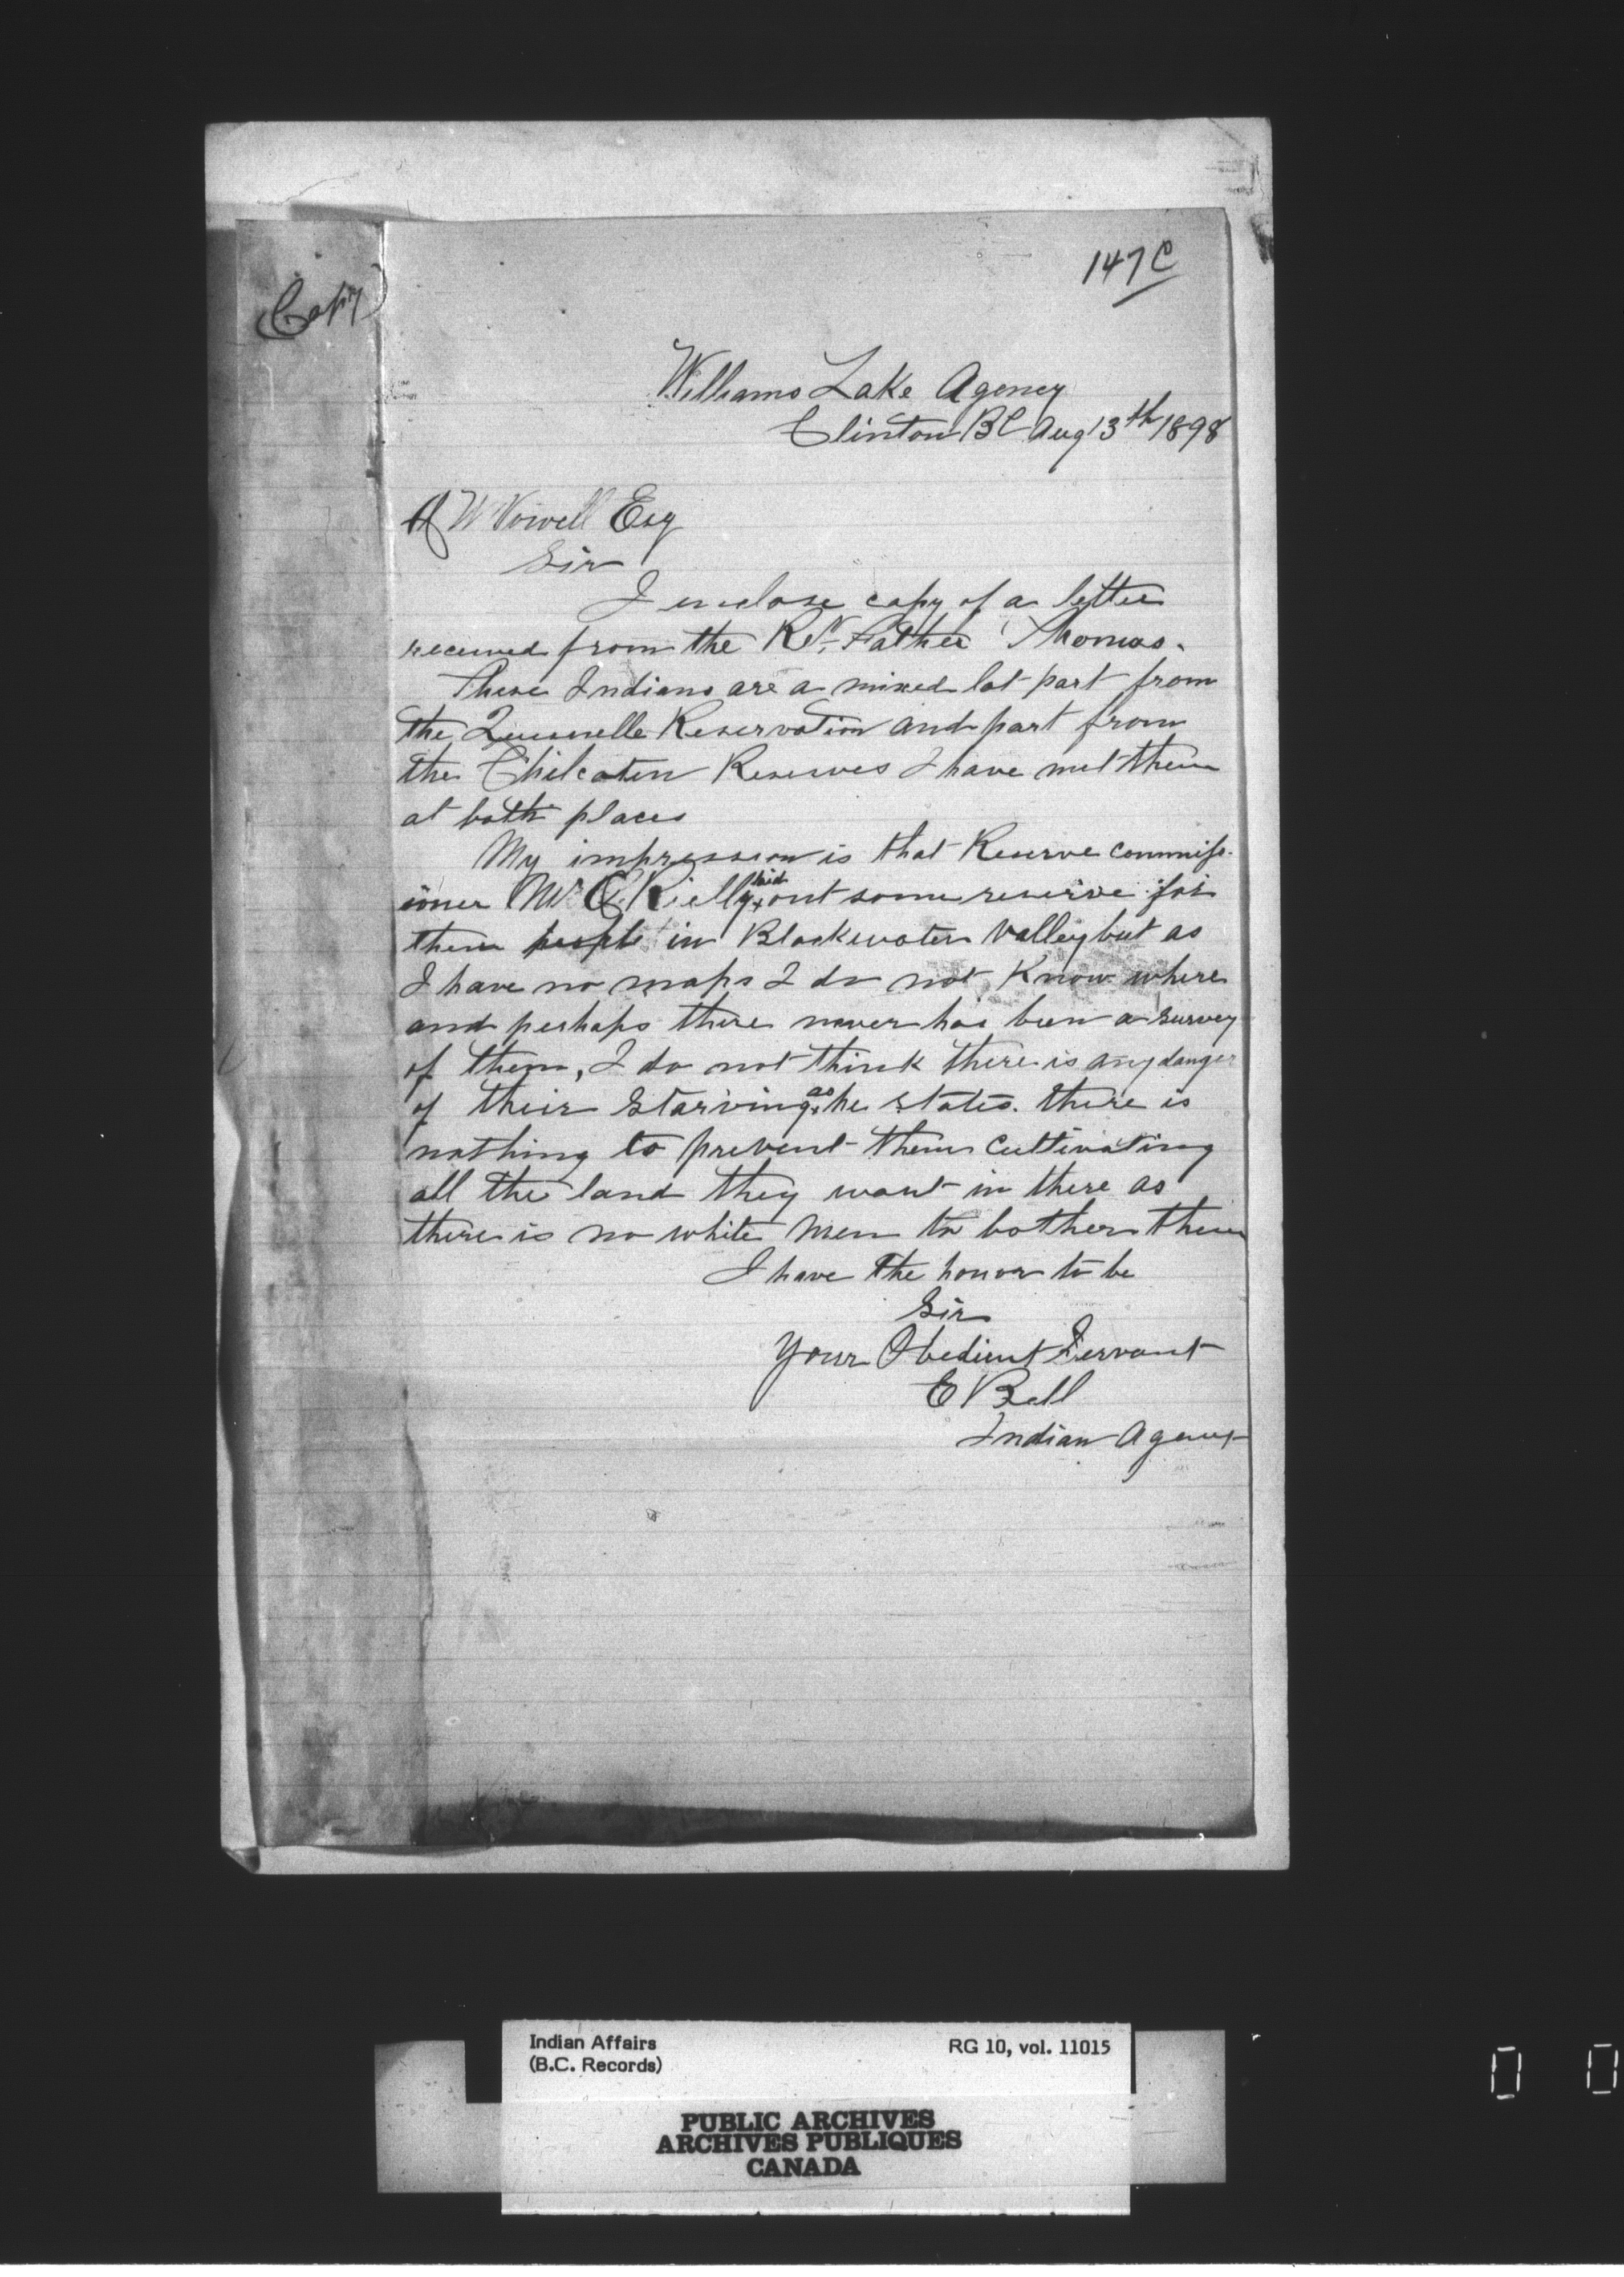 147 C
(Copy)
Williams Lake Agency
Clinton BC Aug 13th 1898
A W Vowell Esq
Sir
I enclose copy of a letter
received from the Rev. Father Thomas.
These Indians are a mixed lot part from
the Quesnelle Reservation and part from
the Chilcoten Reserves I have met them
at both places
My impression is that Reserve commiss-
ioner Mr O Rielly laid out some reserve for
them people in Blackwater Valley but as
I have no maps I do not Know where
and perhaps there never has been a survey
of them, I do not think there is any danger
of their starving as he states. there is
nothing to prevent them cultivating
all the land they want in there as
there is no white men to bother them
I have the honor to be
Sir
Your Obedient Servant
E Bell
Indian Agent
Indian Affairs
(B.C. Records)
RG 10, vol. 11015
PUBLIC ARCHIVES
ARCHIVES PUBLIQUES
CANADA
0 0